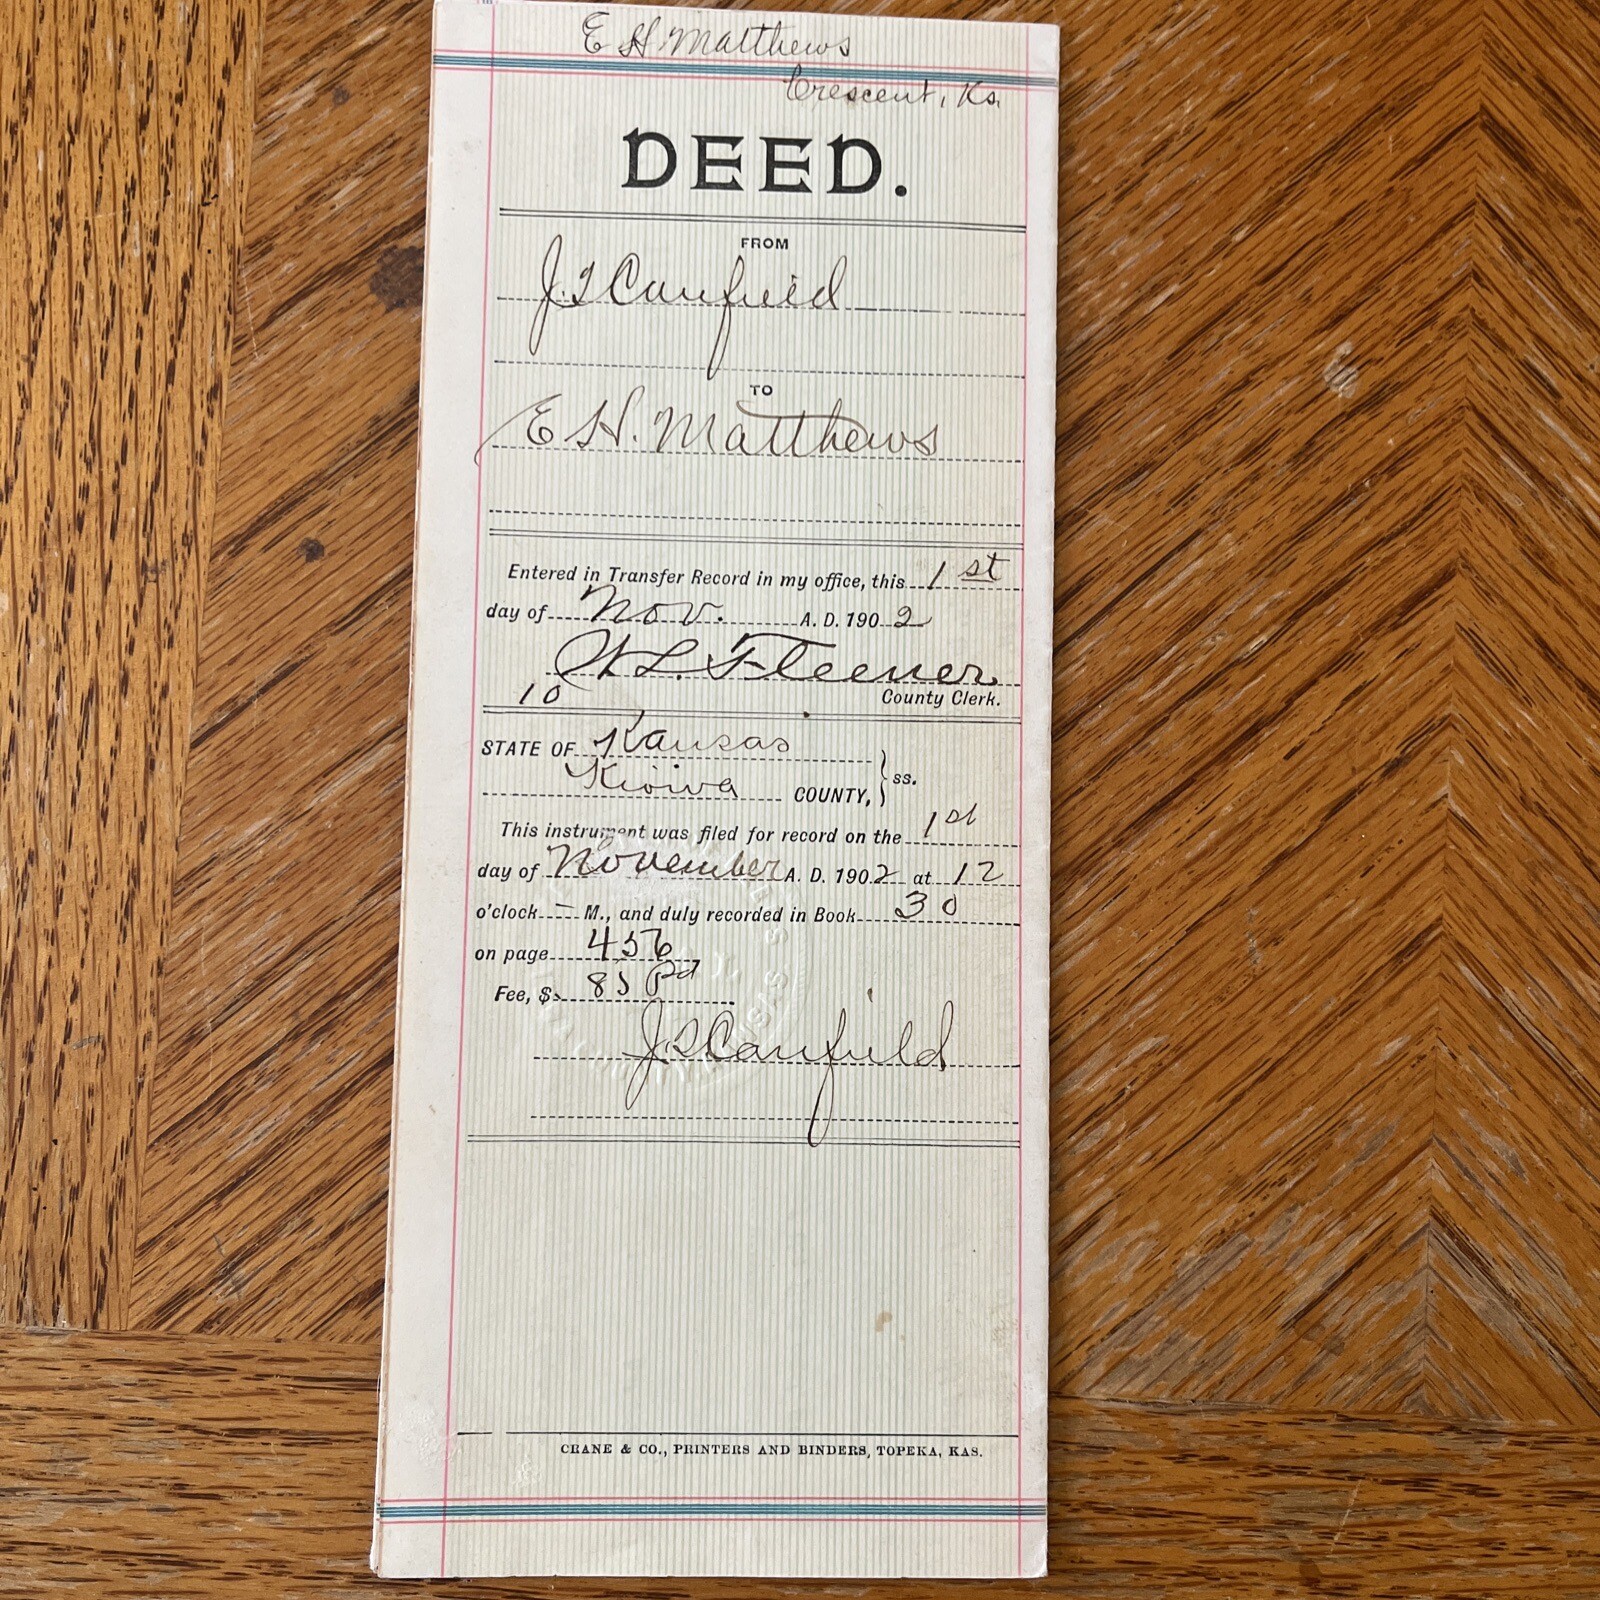 E H Matthews
Crescent, Ks.
DEED.
FROM
J. Canfield
TO
E H. Matthews
Entered in Transfer Record in my office, this 1st
day of Nov. A. D. 1902
L. Fleener
10 County Clerk.
STATE OF Kansas
Kiowa COUNTY, } ss.
This instrument was filed for record on the 1st
day of November A. D. 1902 at 12
o'clock — M., and duly recorded in Book 30
on page 456
Fee, $ 85 Pd
J. Canfield
CRANE & CO., PRINTERS AND BINDERS, TOPEKA, KAS.